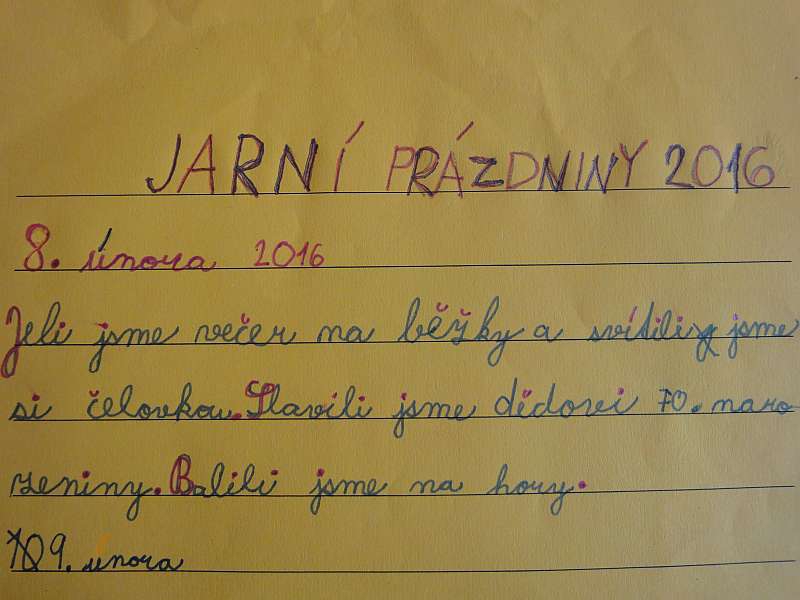 JARNÍ PRÁZDNINY 2016
8. února 2016
Jeli jsme večer na běžky a svítili jsme
si čelovkou. Slavili jsme dědovi 70. naro
zeniny. Balili jsme na hory.
9. února